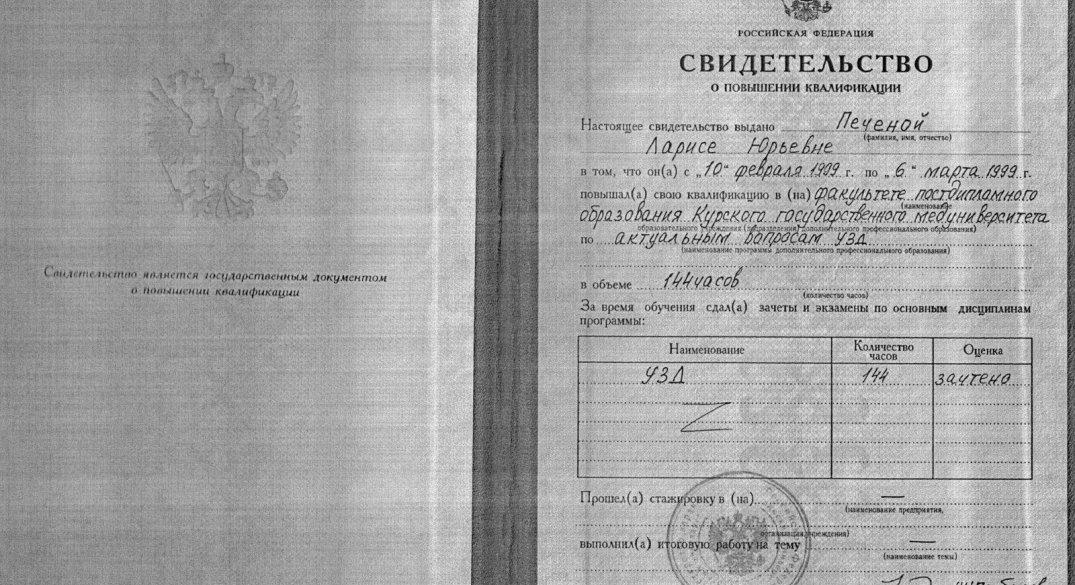 Свидетельство является государственным документом
о повышении квалификации
РОССИЙСКАЯ ФЕДЕРАЦИЯ
СВИДЕТЕЛЬСТВО
О ПОВЫШЕНИИ КВАЛИФИКАЦИИ
Настоящее свидетельство выдано Печеной
(фамилия, имя, отчество)
Ларисе Юрьевне
в том, что он(а) с „10“ февраля 1999 г. по „6“ марта 1999 г.
повышал(а) свою квалификацию в (на) факультете постдипломного
(наименование
образования Курского государственного медуниверситета
образовательного учреждения (подразделения) дополнительного профессионального образования)
по актуальным вопросам УЗД
(наименование программы дополнительного профессионального образования)
в объеме 144 часов
(количество часов)
За время обучения сдал(а) зачеты и экзамены по основным дисциплинам
программы:
Наименование Количество часов Оценка
УЗД 144 зачтено
Прошел(а) стажировку в (на) —
(наименование предприятия,
организации, учреждения)
выполнил(а) итоговую работу на тему —
(наименование темы)